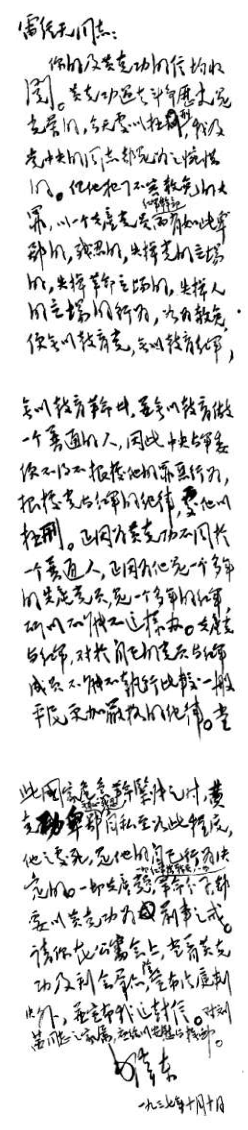 雷经天同志:
你的及黄克功的信均收
阅。黄克功过去斗争历史是
光荣的,今天处以极刑,我及
党中央的同志都是为之惋惜
的。但他犯了不容赦免的大
罪,以一个共产党员红军干部而有如此卑
鄙的,残忍的,失掉党的立场
的,失掉革命立场的,失掉人
的立场的行为,如为赦免,
便无以教育党,无以教育红军,
无以教育革命者,并无以教育做
一个普通的人,因此中央与军委
便不得不根据他的罪恶行为,
根据党与红军的纪律,处他以
极刑。正因为黄克功不同于
一个普通人,正因为他是一个多年
的共产党员,是一个多年的红军,
所以不能不这样办。共产党
与红军,对于自己的党员与红军
成员不能不执行比较一般
平民更加严格的纪律。当
此国家危急革命紧张之时,黄
克功卑鄙无耻残忍自私至如此程度,
他之处死,是他的自己行为决
定的。一切共产党员,一切红军指战员,一切革命分子,都
要以黄克功为前车之戒。
请你在公审会上,当着黄克
功及到会群众,除宣布法庭判
决外,并宣布我这封信。对刘
茜同志之家属,应给以安慰与体恤。
毛泽东
一九三七年十月十日